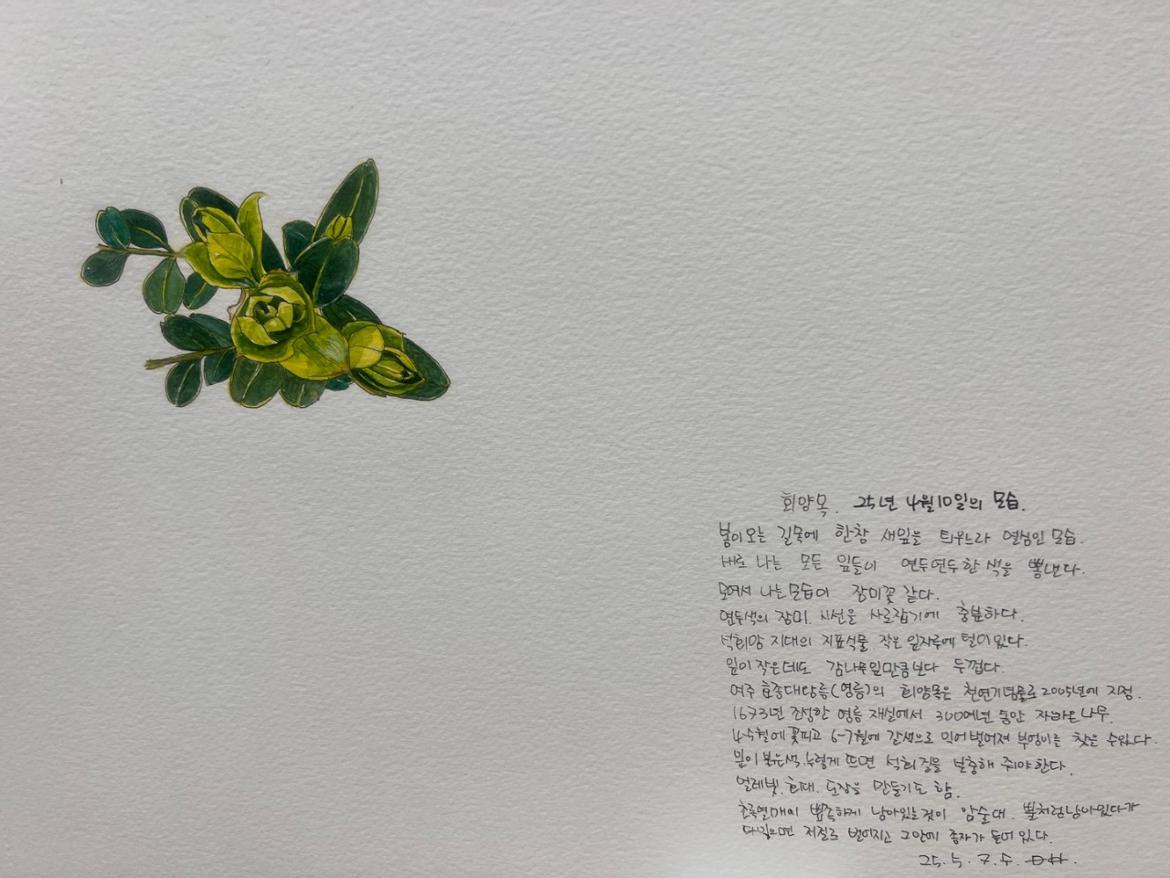 회양목. 25년 4월10일의 모습.
봄이 오는 길목에 한창 새잎을 틔우느라 열심인 모습.
새로 나는 모든 잎들이 연두연두한 색을 뽐낸다.
모여서 나는 모습이 장미꽃 같다.
연두색의 장미. 시선을 사로잡기에 충분하다.
석회암 지대의 지표식물 작은 잎자루에 털이 있다.
잎이 작은데도 감나무잎만큼보다 두껍다.
여주 효종대왕릉(영릉)의 회양목은 천연기념물로 2005년에 지정.
1673년 조성한 영릉 재실에서 300여년 동안 자라온 나무.
4-5월에 꽃피고 6-7월에 갈색으로 익어 벌어져 부엉이를 찾을 수 있다.
잎이 붉은색, 누렇게 뜨면 석회질을 보충해 줘야 한다.
얼레빗, 호패, 도장을 만들기도 함.
초록열매에 뾰족하게 남아있는것이 암술대. 뿔처럼 남아있다가
다익으면 저절로 벌어지고 그안에 종자가 들어 있다.
25. 5. 7. 수.